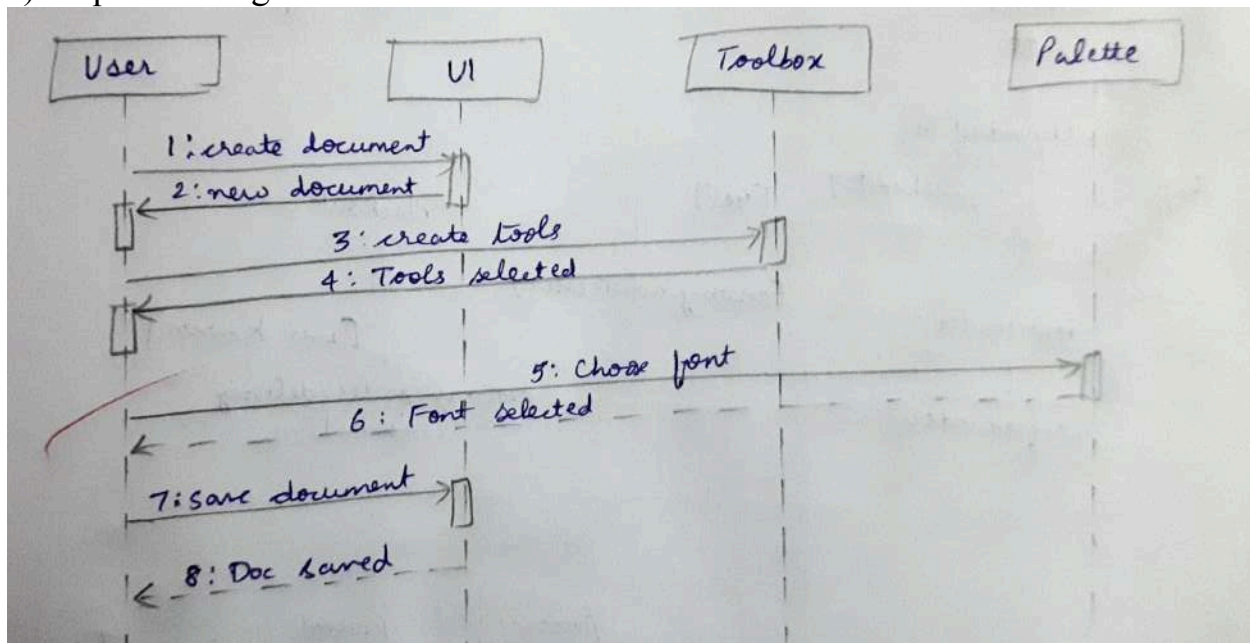 User
UI
Toolbox
Palette
1: create document
2: new document
3: create tools
4: Tools selected
5: Choose font
6: Font selected
7: save document
8: Doc saved